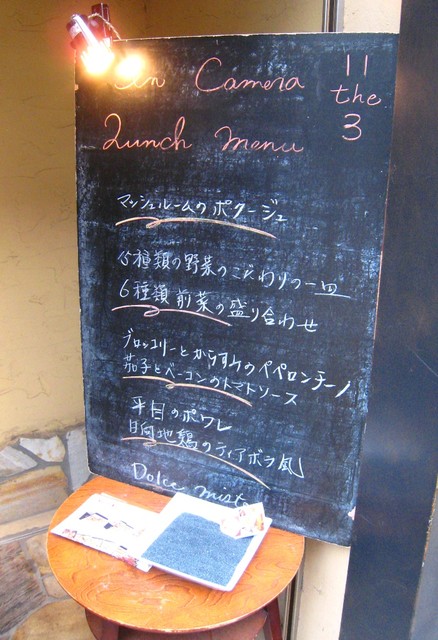 In Camera
Lunch menu
11
the
3
マッシュルームのポタージュ
15種類の野菜のこだわりの一皿
6種類前菜の盛り合わせ
ブロッコリーとからすみのペペロンチーノ
茄子とベーコンのトマトソース
平目のポワレ
日向地鶏のディアボラ風
Dolce mista